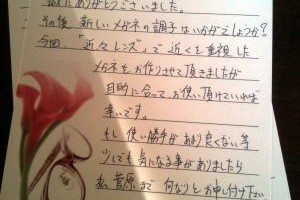 誠にありがとうございました。
その後 新しいメガネの調子はいかがでしょうか?
今回、「近々レンズ」で近くを重視した
メガネをお作りさせて頂きましたが
目的に合って、お使い頂けていれば
幸いです。
もし使い勝手があまり良くない等
少しでも気になる事がありましたら
私 菅原まで 何なりとお申し付け下さい